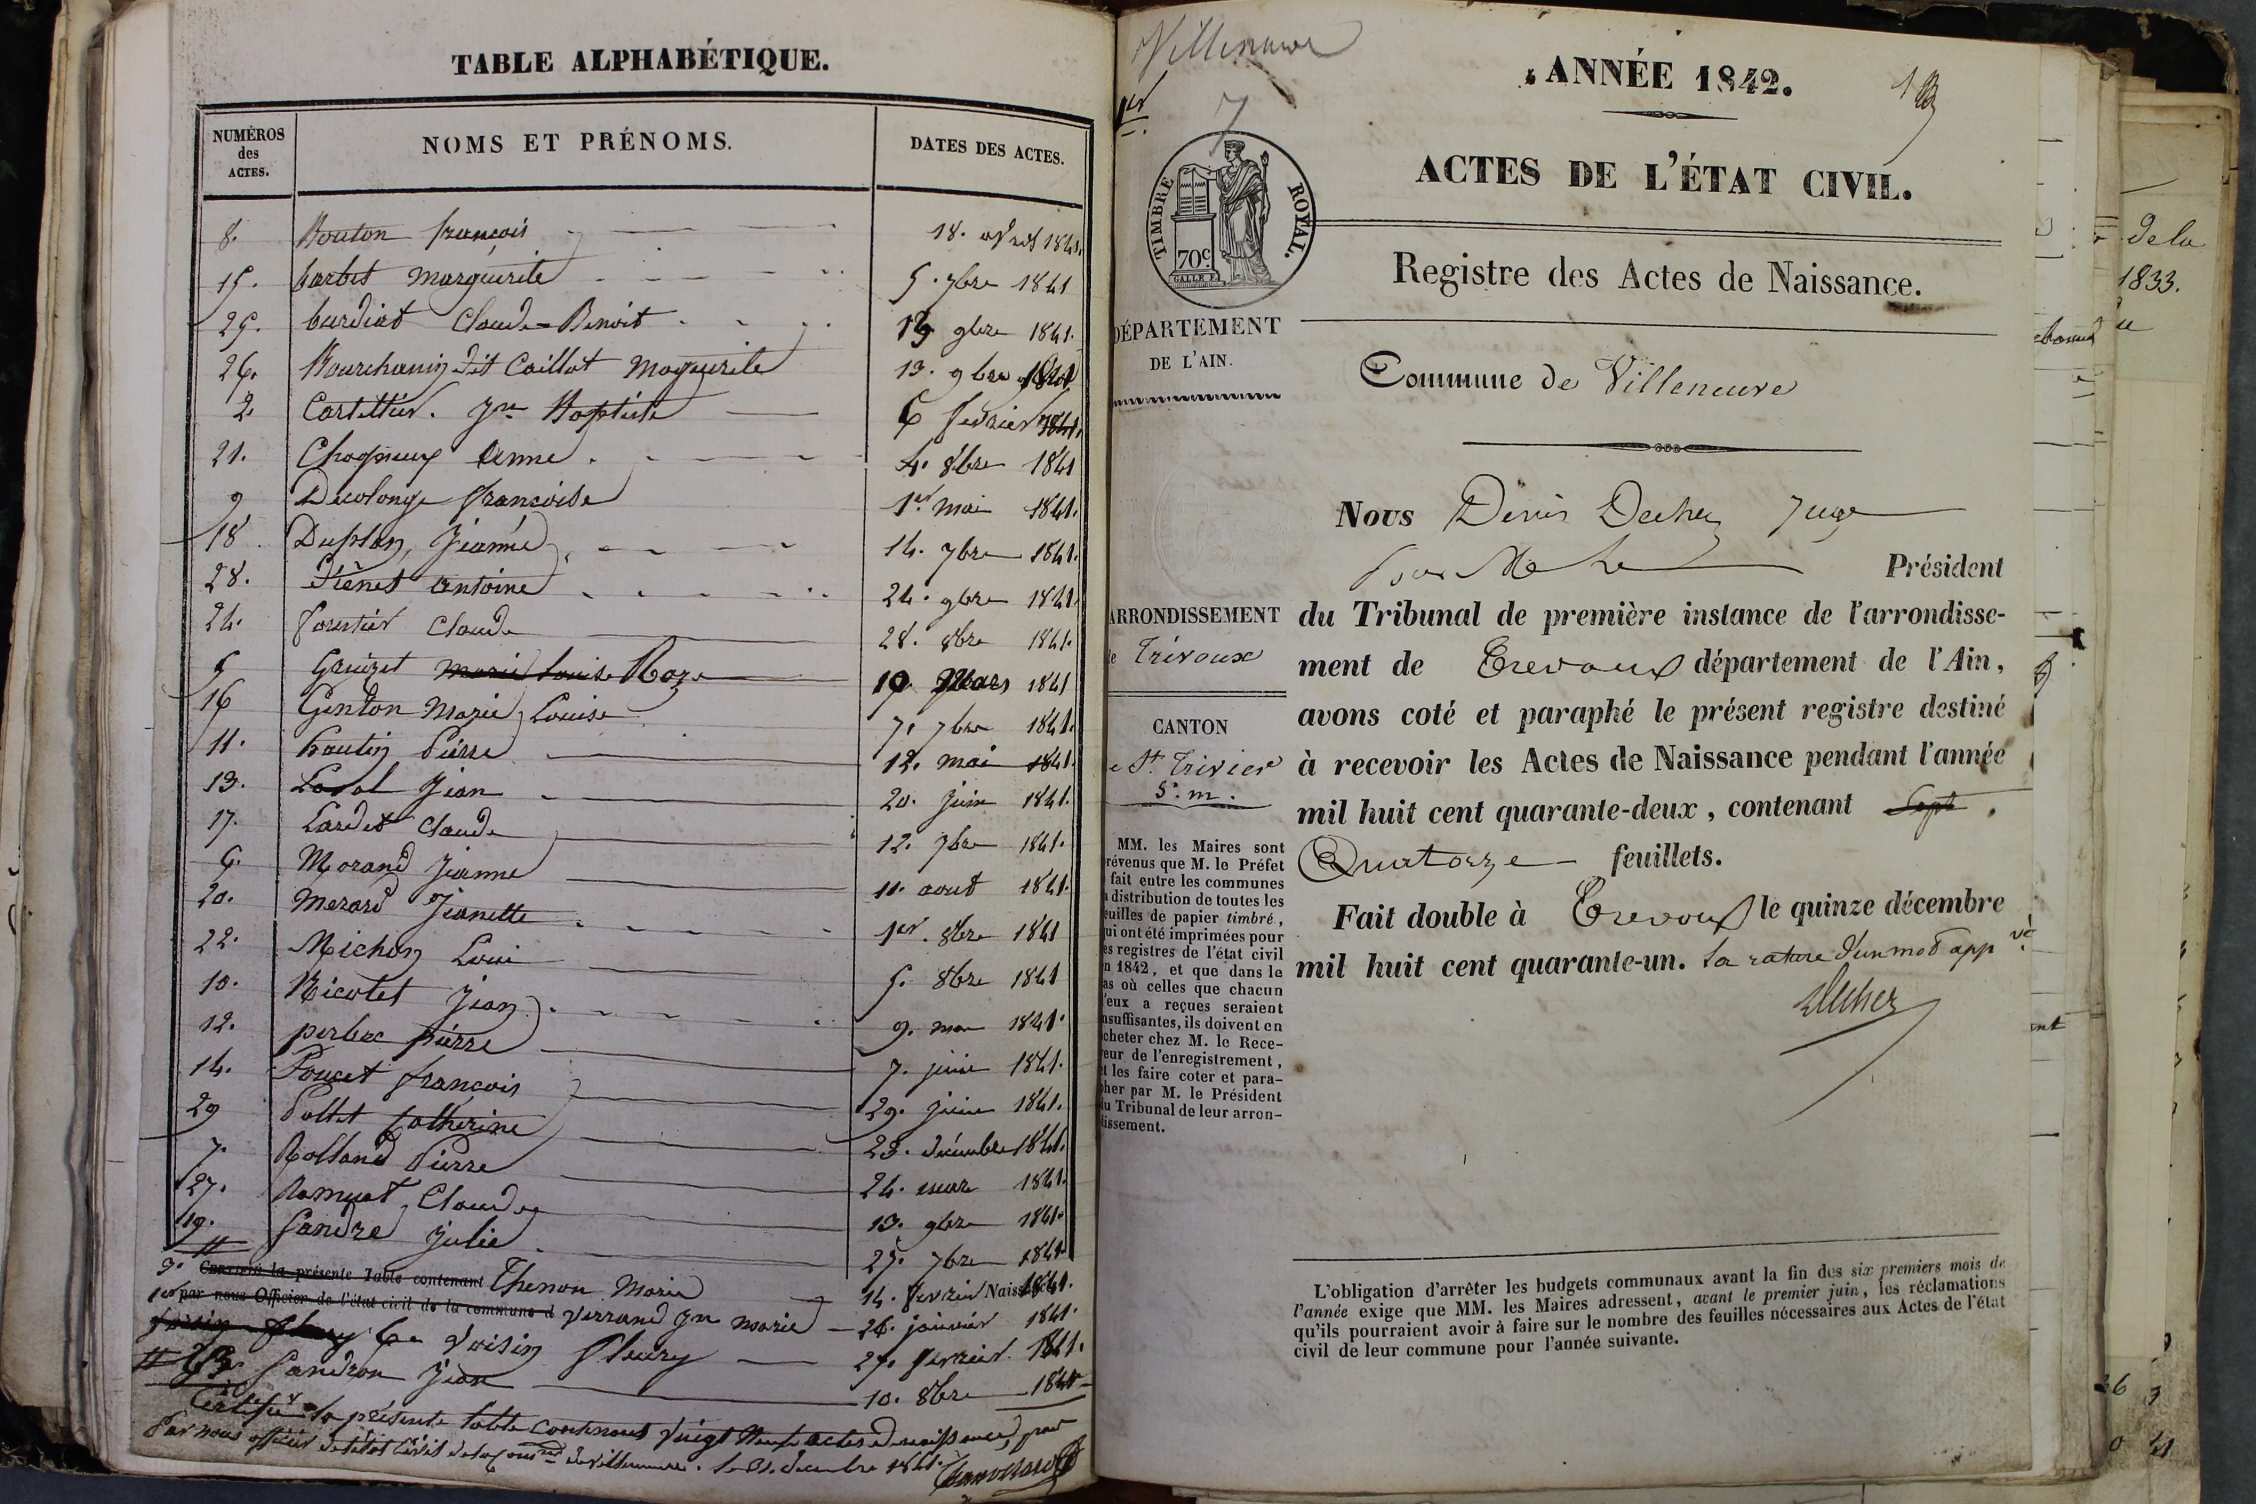 TABLE ALPHABÉTIQUE.
NUMÉROS des ACTES. NOMS ET PRÉNOMS. DATES DES ACTES.
8. Bouton françois 18. avril 1841.
15. barbet marguerite 5. 7bre 1841
25. burdiat Claude-Benoit 13 9bre 1841.
26. Bourchanin dit Caillot Marguerite 13. 9bre 1841
2. Cartellier. Jn Baptiste 6 fevrier 1841.
21. Chagneux Anne 4. 8bre 1841
9 Decolonge francoise 1er mai 1841.
18. Duplan, Jeanne 14. 7bre 1841.
28. antoine 24. 9bre 1841.
24. forestier Claude 28. 8bre 1841.
5 Marie Louise Roze 19 Mars 1841
16 Genton Marie, Louise 7. 7bre 1841.
11. Pierre 12. mai 1841.
13. Laval Jean 20. juin 1841.
17. Lardet Claude 12. 7bre 1841.
Morand Jeanne 11. aout 1841.
20. Merard Jeanette 1er. 8bre 1841
22. Michon Loui 5. 8bre 1841
10. Nicolet Jean 9. mai 1841.
12. pierre 7. juin 1841.
14. Poncet francois 29. juin 1841.
29 Pollet Catherine 23. décembre 1841.
7. Rolland Pierre 24. mars 1841.
27. Claude 13. 9bre 1841.
19. Sandre Julie 25. 7bre 1841
3. Certifié la présente Table contenant Thenon Marie 14. fevrier Naissances 1841.
1er par nous Officier de l'état civil de la commune d Verrand Jn marie 26. janvier 1841.
Voisin fleury 27. fevrier. 1841.
23 Sandron Jean 10. 8bre 1841
Certifié la présente table contenant vingt Neuf actes de naissances, par
Par nous officier de l'état civil de la Comne de villeneuve. le 31. decembre 1841.
Villeneuve
1er
7
ANNÉE 1842.
ACTES DE L'ÉTAT CIVIL.
TIMBRE ROYAL.
70c.
Registre des Actes de Naissance.
DÉPARTEMENT
DE L'AIN.
Commune de Villeneuve
Nous Denis Decher Juge
pour Mr le Président
du Tribunal de première instance de l'arrondisse-
ment de Trevoux département de l'Ain,
avons coté et paraphé le présent registre destiné
à recevoir les Actes de Naissance pendant l'année
mil huit cent quarante-deux, contenant Sept
Quatorze feuillets.
Fait double à Trevoux le quinze décembre
mil huit cent quarante-un. la rature d'un mot appvé
Decher
ARRONDISSEMENT
de Trévoux
CANTON
e St Trivier
s. m.
MM. les Maires sont
révenus que M. le Préfet
fait entre les communes
distribution de toutes les
euilles de papier timbré,
ui ont été imprimées pour
es registres de l'état civil
n 1842, et que dans le
as où celles que chacun
'eux a reçues seraient
nsuffisantes, ils doivent en
cheter chez M. le Rece-
eur de l'enregistrement,
t les faire coter et para-
her par M. le Président
u Tribunal de leur arron-
issement.
L'obligation d'arrêter les budgets communaux avant la fin des six premiers mois de
l'année exige que MM. les Maires adressent, avant le premier juin, les réclamations
qu'ils pourraient avoir à faire sur le nombre des feuilles nécessaires aux Actes de l'état
civil de leur commune pour l'année suivante.
de la
1833.